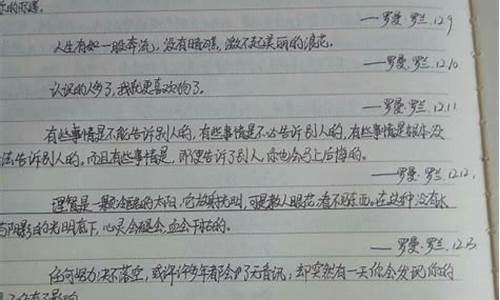 ——罗曼·罗兰.12.9
人生有如一股奔流,没有暗礁,激不起美丽的浪花。
——罗曼·罗兰.12.10
认识的人多了,我就更喜欢狗了。
——罗曼·罗兰.12.11
有些事情是不能告诉别人的,有些事情是不必告诉别人的,有些事情是根本没
法告诉别人的,而且有些事情是,即使告诉了别人,你也会马上后悔的。
——罗曼·罗兰.12.12.
理智是一颗冷酷的太阳,它放射光明,可是教人眼花,看不见东西。在这种没有水
与阴影的光明底下,心灵会褪色,血会干枯的。
——罗曼·罗兰.12.13
任何努力决不落空,或许许多年都会了无音讯,却突然有一天你会发现你的